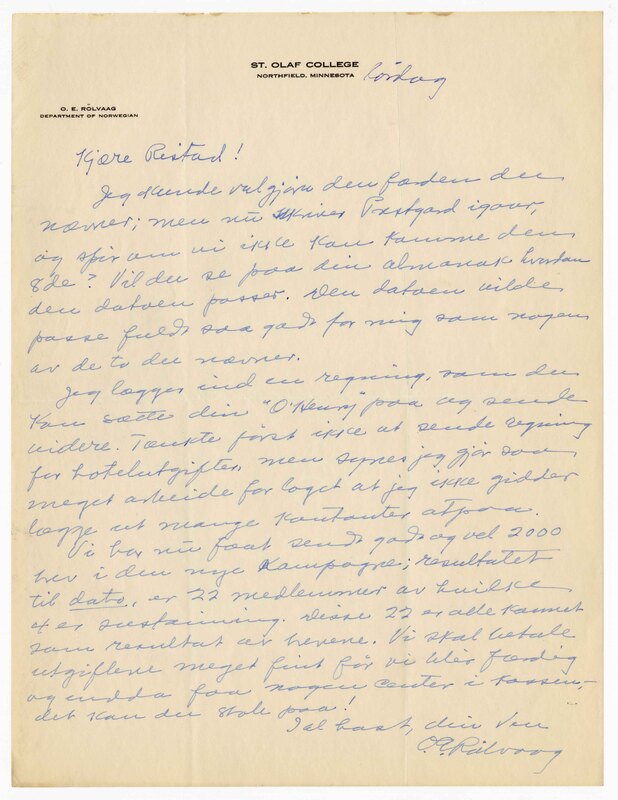 ST. OLAF COLLEGE
NORTHFIELD, MINNESOTA
Lördag
O. E. RÖLVAAG
DEPARTMENT OF NORWEGIAN
Kjære Ristad!
Jeg kunde vel gjøre den færden du
nævner; men nu skriver Prstgard igaar,
og spør om vi ikke kan komme den
8de? Vil du se paa din almanak hvordan
den datoen passer. Den datoen vilde
passe fuldt saa godt for mig som nogen
av de to du nævner.
Jeg lægger ind en regning, som du
kan sætte din "O'Henry" paa og sende
videre. Tænkte først ikke at sende regning
for hotelutgifter, men synes jeg gjør saa
meget arbeide for laget at jeg ikke gidder
lægge ut mange kontanter atpaa.
Vi har nu faat sendt godt og vel 2000
brev i den nye kampagne; resultatet
til dato, er 22 medlemmer av hvilke
4 er sustaining. Disse 22 er alle kommet
som resultat av brevene. Vi skal betale
utgiftene meget fint før vi blir færdig
og endda faa nogen center i kassen,–
det kan du stole paa!
I al hast, din Ven
O.E. Rölvaag